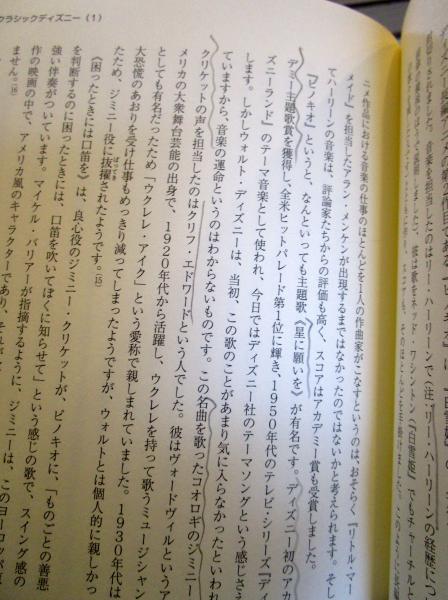 クラシックディズニー (1)
ニメ作品における音楽の仕事のほとんどを1人の作曲家がこなすというのは、おそらく『リトル・マー
メイド』を担当したアラン・メンケンが出現するまではなかったのではないかと考えられます。そし
てハーリーンの音楽は、評論家たちからの評価も高く、スコアはアカデミー賞も受賞しました。
『ピノキオ』というと、なんといっても主題歌《星に願いを》が有名です。ディズニー初のアカ
デミー主題歌賞を獲得し、全米ヒットパレード第1位に輝き、1950年代のテレビ・シリーズ『ディ
ズニーランド』のテーマ音楽として使われ、今日ではディズニー社のテーマソングという感じさえ
します。しかしウォルト・ディズニーは、当初、この歌のことがあまり気に入らなかったといわれ
ていますから、音楽の運命というのはわからないものです。この名曲を歌ったコオロギのジミニー
クリケットの声を担当したのはクリフ・エドワードという人でした。彼はヴォードヴィルというア
メリカの大衆舞台芸能の出身で、1920年代から活躍し、ウクレレを持って歌うミュージシャン
としても有名だったため「ウクレレ・アイク」という愛称で親しまれていました。1930年代は
大恐慌のあおりを受け仕事もめっきり減ってしまったようですが、ウォルトとは個人的に親しかっ
たため、ジミニー役に抜擢されたようです。(15)
《困ったときには口笛を》は、良心役のジミニー・クリケットが、ピノキオに、「ものごとの善悪
を判断するのに困ったときには、口笛を吹いてぼくに知らせて」という感じの歌で、スイング感の
強い伴奏がついています。マイケル・バリアーが指摘するように、ジミニーは、このヨーロッパ
作の映画の中で、アメリカ風のキャラクターであり、
ません。(16)